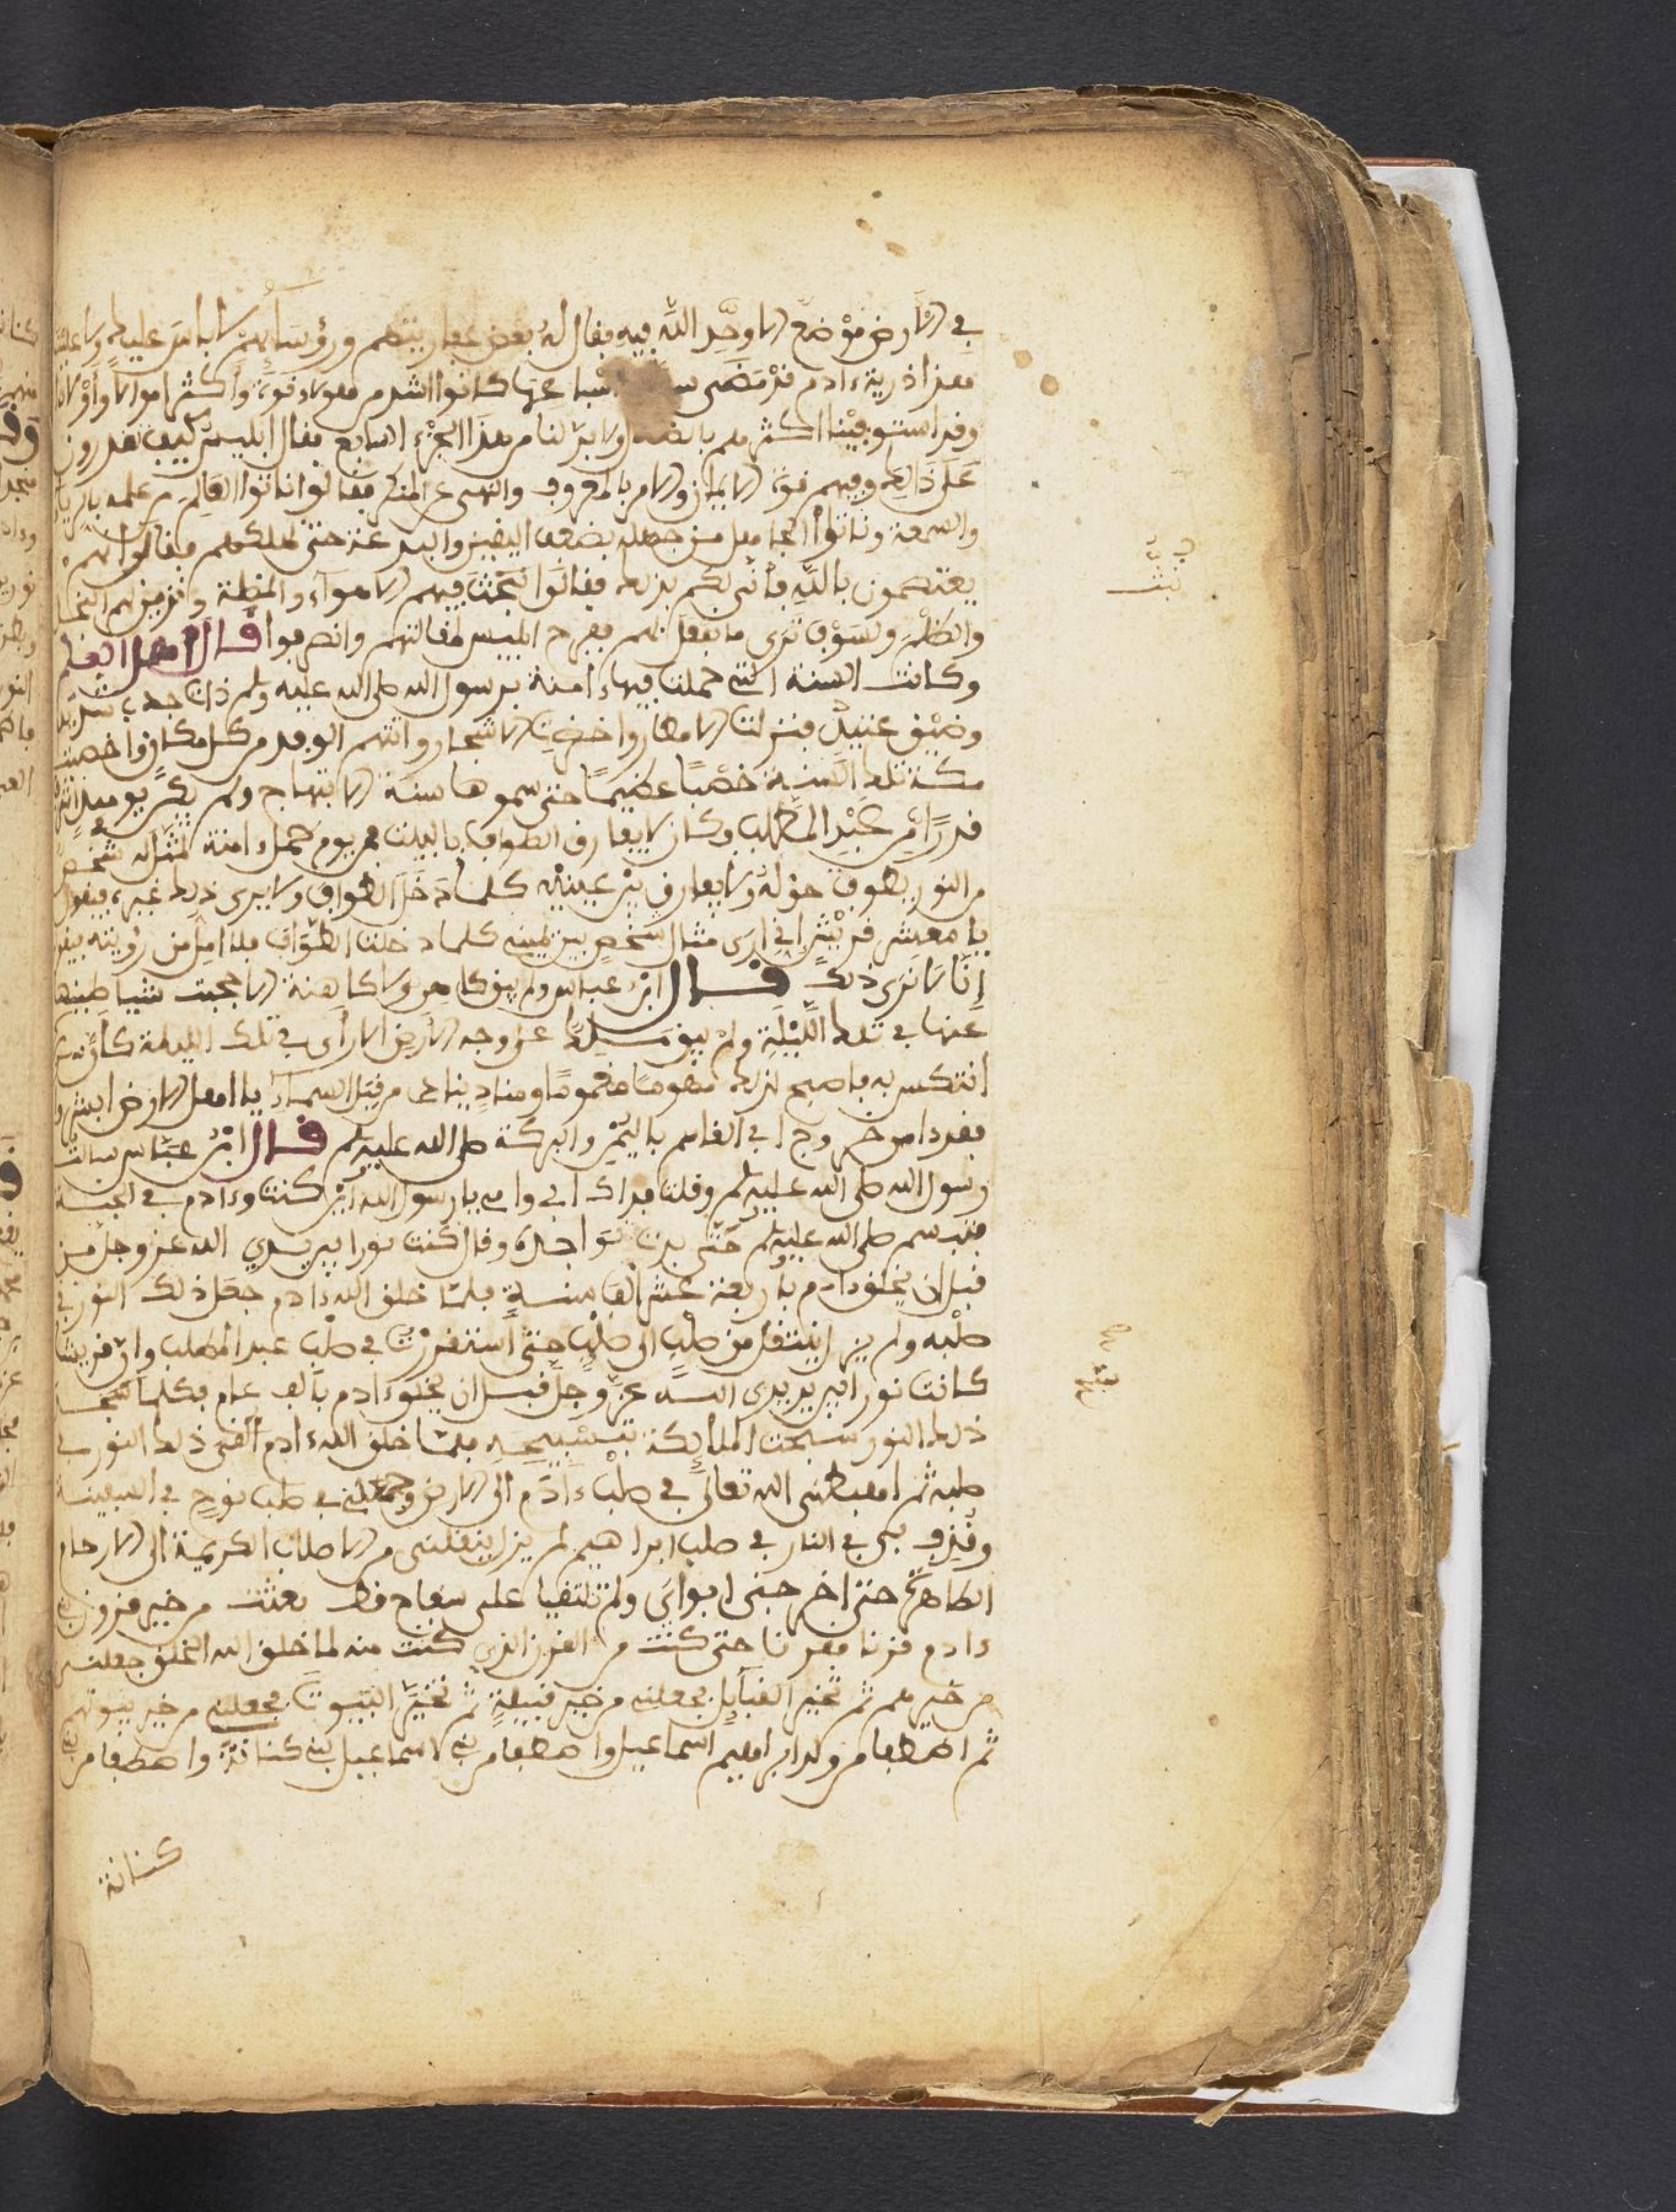 في الارض موضع الا وحد الله فيه فقال له بعض عفاريتهم ورؤسايهم لا باس عليك ولا علينا
هذا ذرية ءادم قد مضى كانوا اشد من هولاء قوة واكثر اموالا واولادا
وقد استوفينا اكثرهم ولا بد لنا من هذا الجزء السابع فقال ابليس كيف تقدرون
على ذالك وفيهم قوة الايمان والامر بالمعروف والنهي عن المنكر فقالوا ناتوا العالم من علمه بالريا
والسمعة وناتوا الجاهل من جهله بضعف اليقين والبدعة حتى نهلكهم فقال انهم
يعتصمون بالله فانى لكم بذلك فقالوا نبث فيهم الاهواء
والظلم ولسوف ترى ما نفعل بهم ففرح ابليس لمقالتهم وانصرفوا قال اهل العلم
وكانت السنة التي حملت فيها ءامنة برسول الله صلى الله عليه وسلم ذات جدب شديد
وضيق عتيد فنزلت الامطار واخضرت الاشجار واتتهم الوفد من كل مكان واخصبت
مكة تلك السنة خصبا عظيما حتى سموها سنة الابتهاج ولم يكن يومئذ
قدرا من عبد المطلب وكان لا يفارق الطواف بالبيت فمن يوم حمل ءامنة تمثل له شخص
من النور يطوف حوله ولا يفارق بين عينيه كلما دخل الطواف ولا يرى ذلك غيره فيقول
يا معشر قريش اني ارى مثال شخص بين عيني كلما دخلت الطواف فلا امل من رؤيته فيقولون
انا لا نرى ذلك قال ابن عباس ولم يبق كاهن ولا كاهنة الا حجبت شياطينها
عنها في تلك الليلة ولم يبق ملك على وجه الارض الا راى في تلك الليلة كان
انتكس به فاصبح لذلك مهموما مغموما ومناد ينادي من قبل السماء يا اهل الارض ابشروا
فقد دنا خروج ابي القاسم باليمن والبركة صلى الله عليه وسلم قال ابن عباس سالت
رسول الله صلى الله عليه وسلم وقلت فداك ابي وامي يا رسول الله اين كنت وءادم في الجنة
فتبسم صلى الله عليه وسلم حتى بدت نواجده وقال كنت نورا بين يدي الله عز وجل من
قبل ان يخلق ءادم باربعة عشر الف سنة فلما خلق الله ءادم جعل ذلك النور في
صلبه ولم يزل ينتقل من صلب الى صلب حتى استقررت في صلب عبد المطلب وان قريشا
كانت نورا بين يدي الله عز وجل قبل ان يخلق ءادم بالف عام فكلما سبح
ذلك النور سبحت الملايكة بتسبيحه فلما خلق الله ءادم القى ذلك النور في
صلبه ثم اهبطني الله تعالى في صلب ءادم الى الارض وجعلني في صلب نوح في السفينة
وقذف بي في النار في صلب ابراهيم لم يزل ينقلني من الاصلاب الكريمة الى الارحام
الطاهرة حتى اخرجني ابواي ولم يلتقيا على سفاح قط بعثت من خير قرون بني
ءادم قرنا فقرنا حتى كنت من القرن الذي كنت منه لما خلق الله الخلق جعلني
من خيرهم ثم تخير القبايل فجعلني من خير قبيلة ثم تخير البيوت فجعلني من خير بيوتهم
ثم اصطفى من ولد ابراهيم اسماعيل واصطفى من بني اسماعيل بني كنانة واصطفى من بني
كنانة
نبث